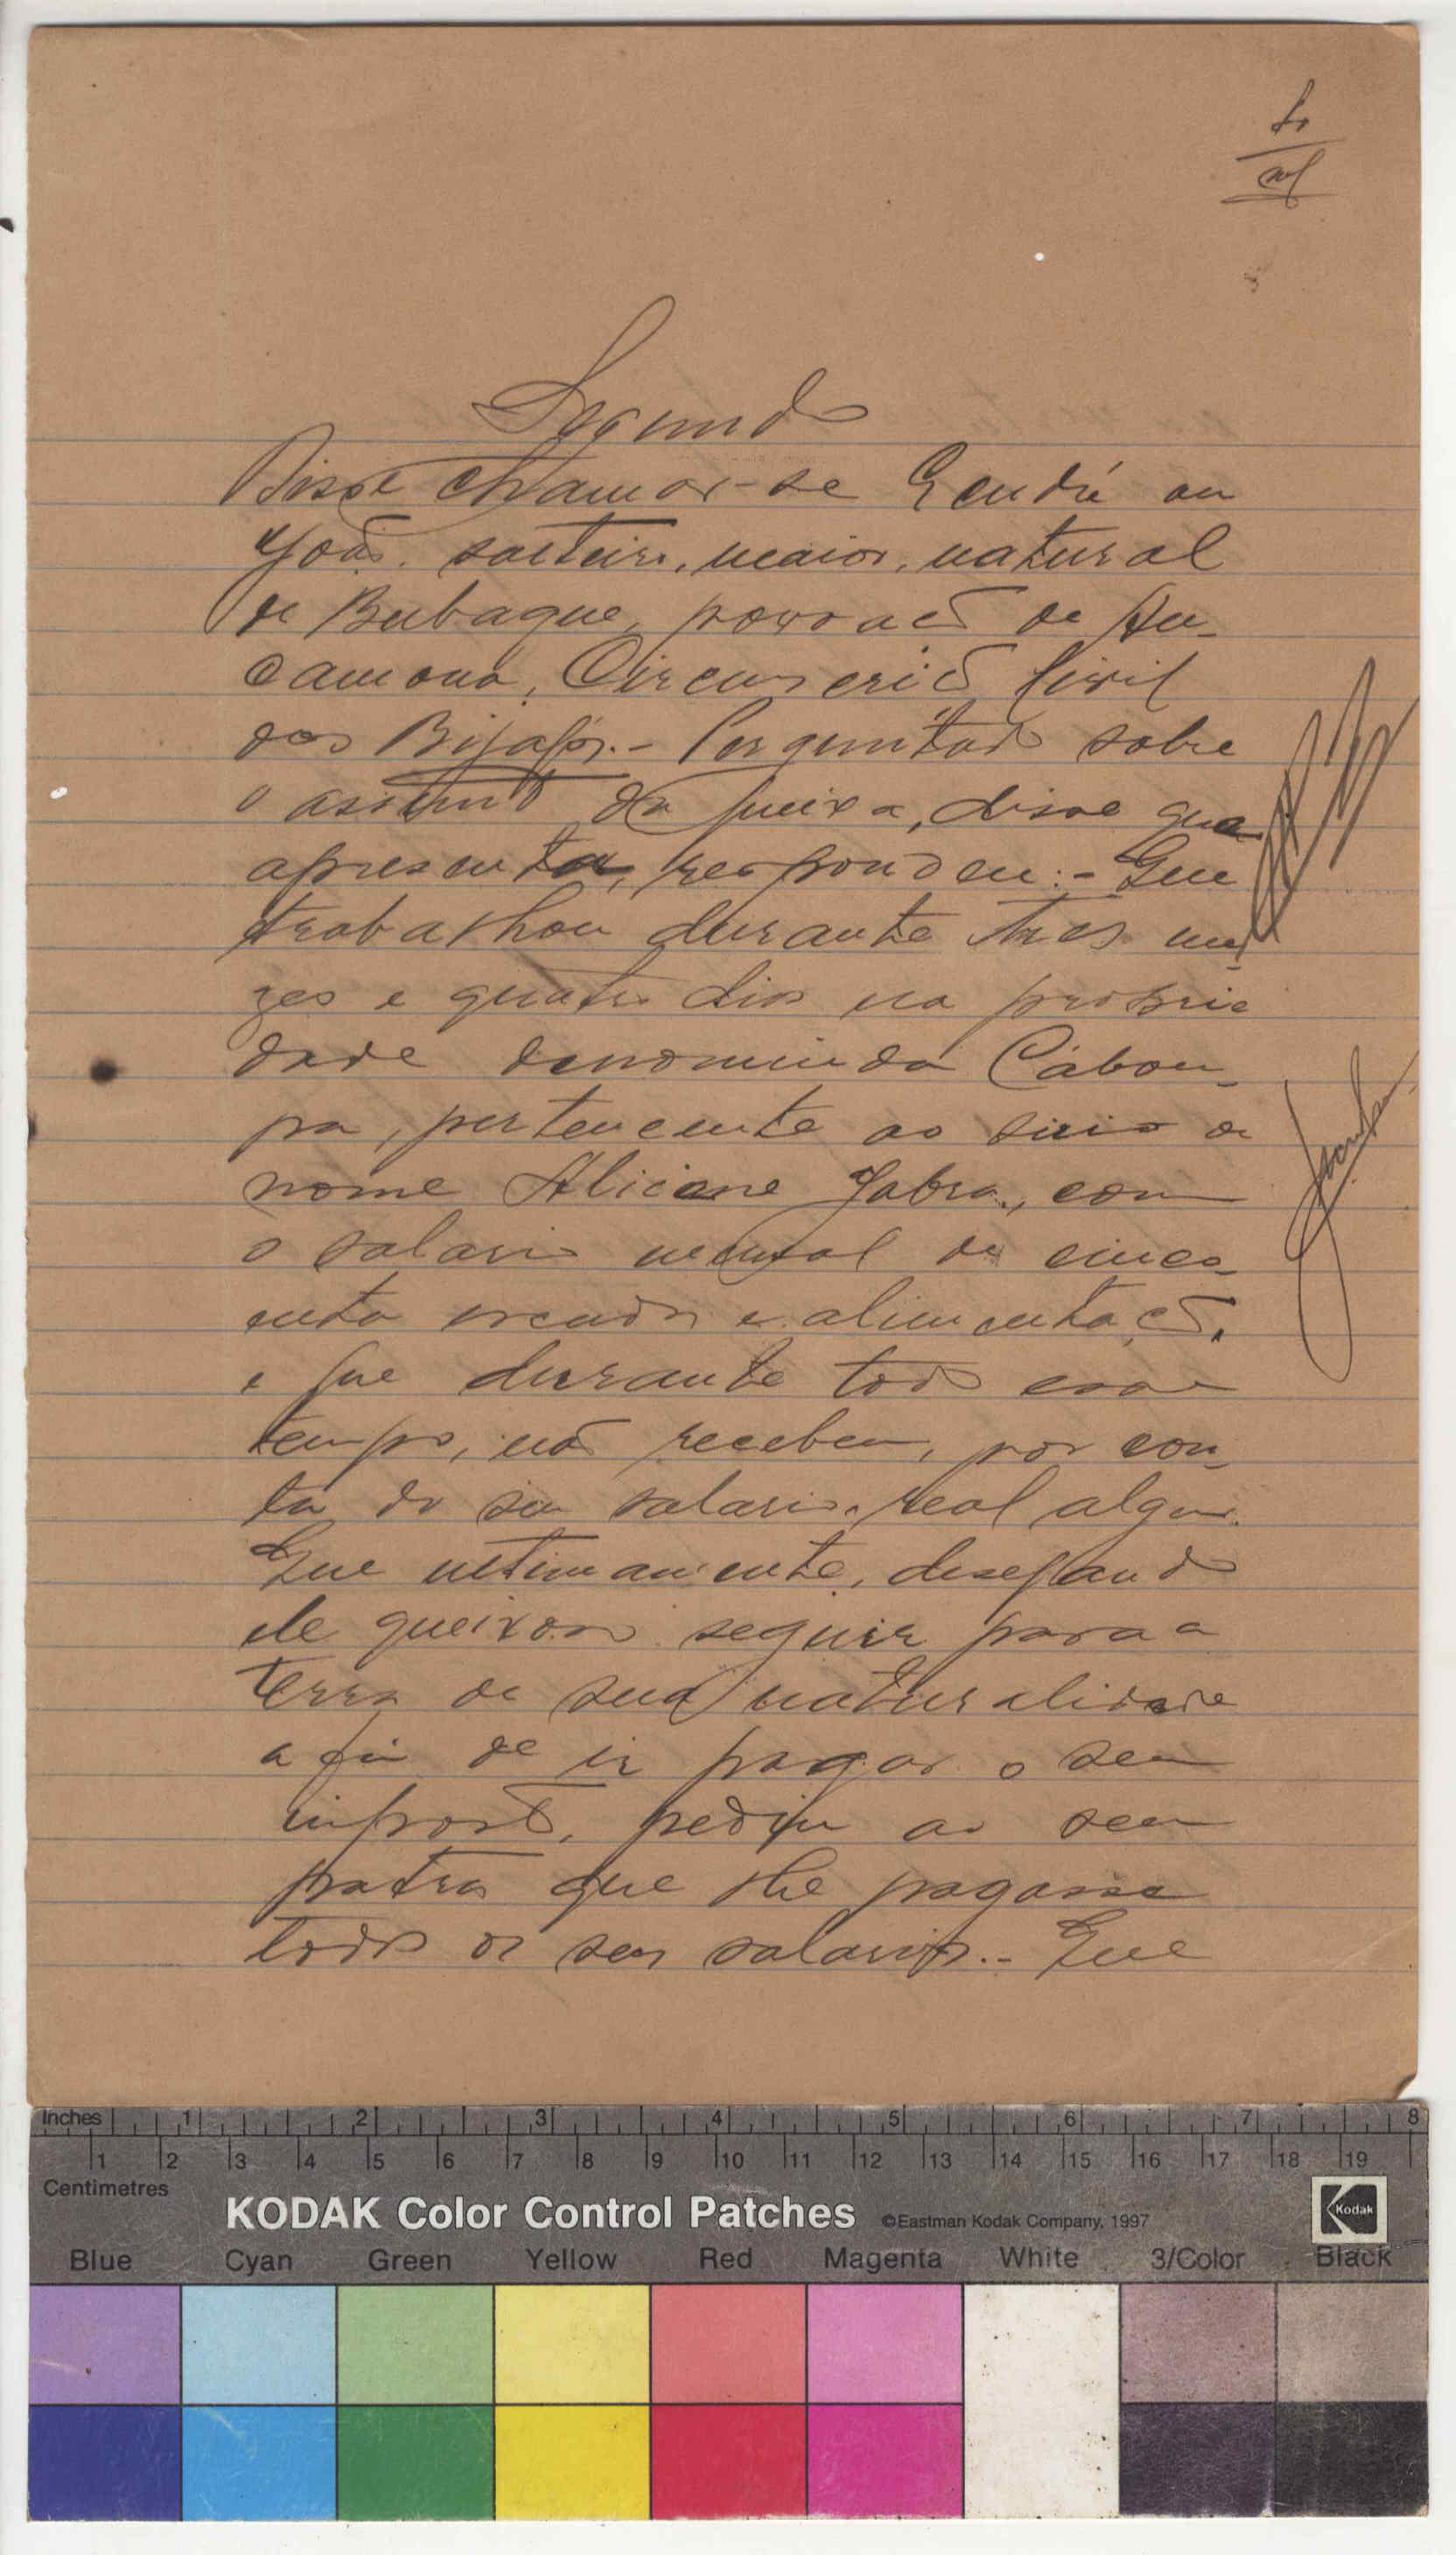 Segundo
Disse chamar-se Gendié ou
Joaõ. solteiro, maior, natural
de Bubaque, povoacõ de An-
camona, Circunscricõ Civil
dos Bijagós.- Perguntado sobre
o assunto da queixa, disse que
apresenta, respondeu:- Que
trabalhou durante tres me-
zes e quatro dias na proprie
dade denominda Cabou-
pa, pertencente ao sirio de
nome Aliciane Jabra, com
o salario mensal de cinco-
enta escudos e alimentacõ,
e que durante todo esse
tempo, não recebeu, por con-
ta do seu salario, real algum.
Que ultimamente, desejando
ele queixoso seguir para a
terra de sua naturalidade
a fim de ir pagar o seu
imposto, pediu ao seu
patrão que lhe pagasse
todos os seus salarios.- Que
Inches 1 2 3 4 5 6 7 8
1 2 3 4 5 6 7 8 9 10 11 12 13 14 15 16 17 18 19
Centimetres
KODAK Color Control Patches ©Eastman Kodak Company, 1997 Kodak
Blue Cyan Green Yellow Red Magenta White 3/Color Black